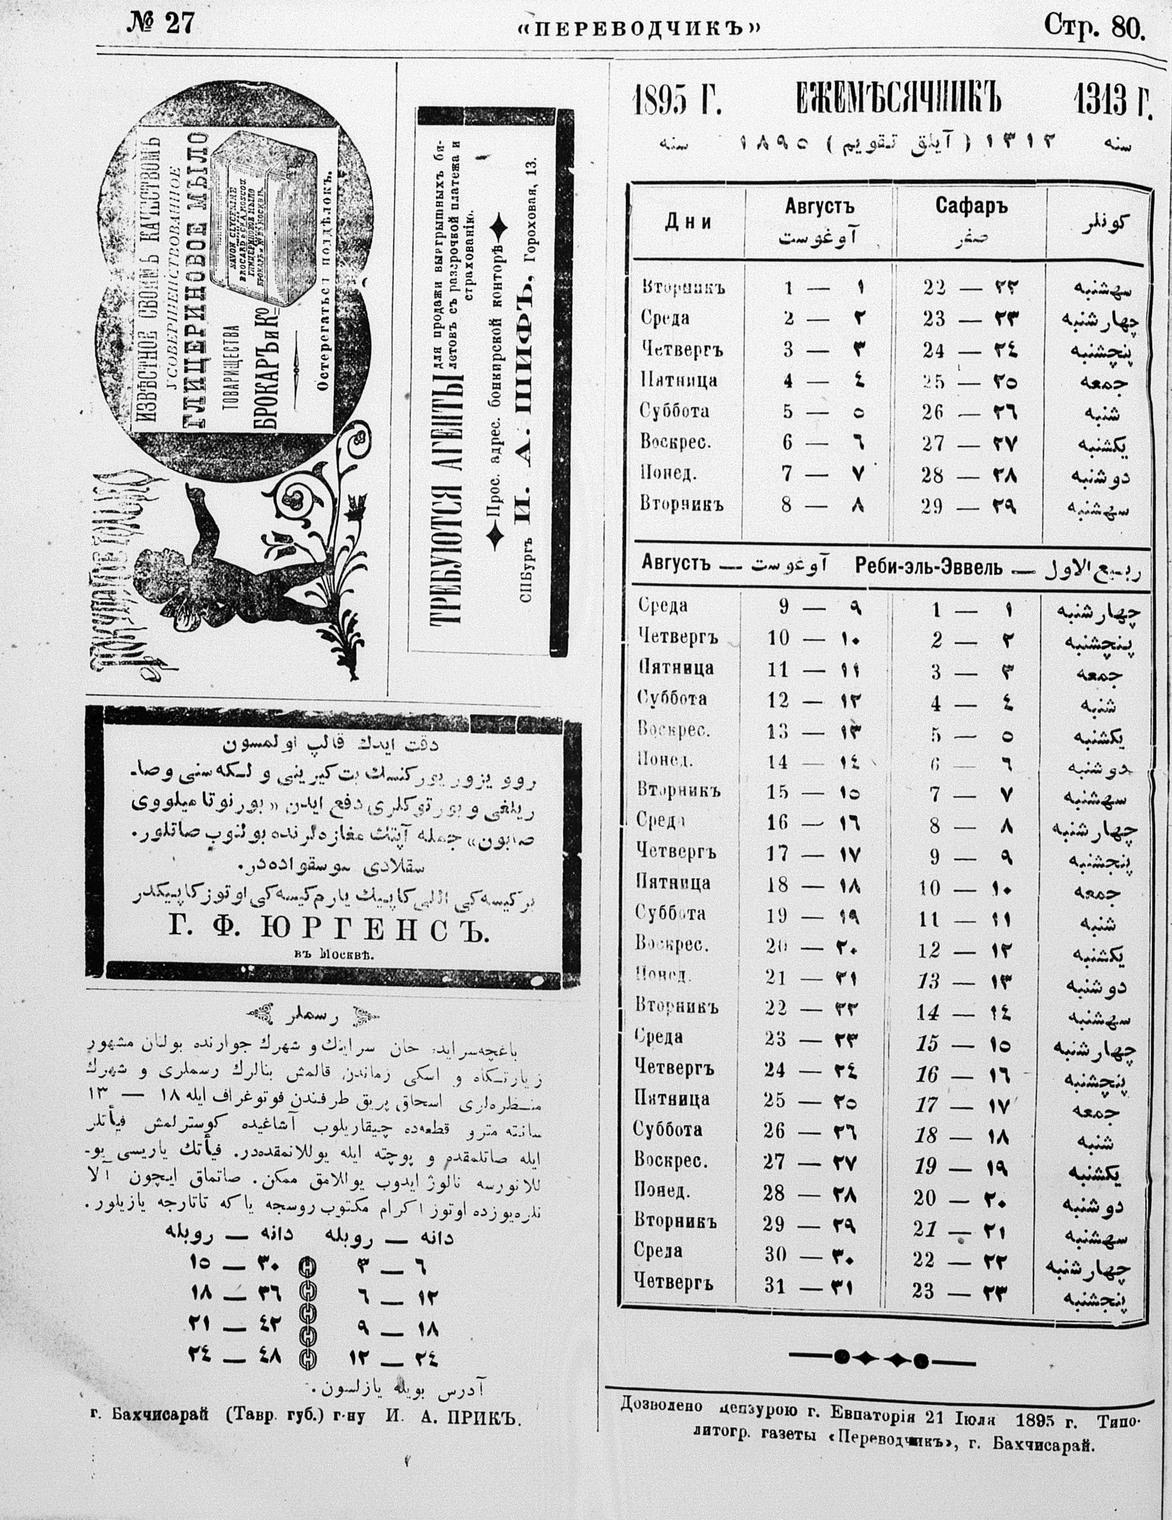 № 27
«ПЕРЕВОДЧИКЪ»
Стр. 80.
ИЗВѢСТНОЕ СВОИМЪ КАЧЕСТВОМЪ
УСОВЕРШЕНСТВОВАННОЕ
ГЛИЦЕРИНОВОЕ МЫЛО
ТОВАРИЩЕСТВА
БРОКАРЪ и Ко
Остерегаться поддѣлокъ.
SAVON GLYCERINE
BROCARD & Co MOSCOU
ГЛИЦЕРИНОВОЕ МЫЛО
БРОКАРЪ и Ко МОСКВА
ТРЕБУЮТСЯ АГЕНТЫ
для продажи выигрышныхъ би-
летовъ съ разсрочкой платежа и
страхованію.
Прос. адрес. банкирской конторѣ
СПБургъ И. А. ШИФЪ, Гороховая, 13.
دقت ايدك قالپ اولمسون
روو يزور يوركنسك بت كيريني و لكه سنى وصا-
ريلغى و بورتوكلرى دفع ايدن «بورنوتا ميلووى
صابون» جمله آپتك مغازه لرنده بولنوب صاتلور.
سقلادى موسقواده در.
بر كيسه كى اللى كاپيك يارم كيسه كى اوتوز كاپيكدر
Г. Ф. ЮРГЕНСЪ.
въ Москвѣ.
رسملر
باغچه سرايده خان سراينك و شهرك جوارنده بولنان مشهور
زيارتكاه و اسكى زماندن قالمش بنالرك رسملرى و شهرك
منظره لرى اسحاق پريق طرفندن فوتوغراف ايله ١٨ — ١٣
سانته مترو قطعه ده چيقاريلوب آشاغيده كوسترلمش فيأتلر
ايله صاتلمقدم و پوچته ايله يوللانمقده در. فيأتك ياريسى يو-
للانورسه نالوژ ايدوب يوللامق ممكن. صاتماق ايچون آلا
نلره يوزده اوتوز اكرام مكتوب روسجه ياكه تاتارجه يازيلور.
دانه — روبله دانه — روبله
٦ — ٣ ٣٠ — ١٥
١٢ — ٦ ٣٦ — ١٨
١٨ — ٩ ٤٢ — ٢١
٢٤ — ١٢ ٤٨ — ٢٤
آدرس بويله يازلسون.
г. Бахчисарай (Тавр. губ.) г-ну И. А. ПРИКЪ.
1895 Г. ЕЖЕМѢСЯЧНИКЪ 1313 Г.
سنه ١٣١٣ ( آيلق تقويم ) ١٨٩٥ سنه
Дни Августъ Сафаръ كونلر
آوغوست صفر
Вторникъ 1 — ١ 22 — ٢٢ سهشنبه
Среда 2 — ٢ 23 — ٢٣ چهارشنبه
Четвергъ 3 — ٣ 24 — ٢٤ پنچشنبه
Пятница 4 — ٤ 25 — ٢٥ جمعه
Суббота 5 — ٥ 26 — ٢٦ شنبه
Воскрес. 6 — ٦ 27 — ٢٧ يكشنبه
Понед. 7 — ٧ 28 — ٢٨ دوشنبه
Вторникъ 8 — ٨ 29 — ٢٩ سهشنبه
Августъ — آوغوست Реби-эль-Эввель — ربيع الاول
Среда 9 — ٩ 1 — ١ چهارشنبه
Четвергъ 10 — ١٠ 2 — ٢ پنچشنبه
Пятница 11 — ١١ 3 — ٣ جمعه
Суббота 12 — ١٢ 4 — ٤ شنبه
Воскрес. 13 — ١٣ 5 — ٥ يكشنبه
Понед. 14 — ١٤ 6 — ٦ دوشنبه
Вторникъ 15 — ١٥ 7 — ٧ سهشنبه
Среда 16 — ١٦ 8 — ٨ چهارشنبه
Четвергъ 17 — ١٧ 9 — ٩ پنجشنبه
Пятница 18 — ١٨ 10 — ١٠ جمعه
Суббота 19 — ١٩ 11 — ١١ شنبه
Воскрес. 20 — ٢٠ 12 — ١٢ يكشنبه
Понед. 21 — ٢١ 13 — ١٣ دوشنبه
Вторникъ 22 — ٢٢ 14 — ١٤ سهشنبه
Среда 23 — ٢٣ 15 — ١٥ چهارشنبه
Четвергъ 24 — ٢٤ 16 — ١٦ پنچشنبه
Пятница 25 — ٢٥ 17 — ١٧ جمعه
Суббота 26 — ٢٦ 18 — ١٨ شنبه
Воскрес. 27 — ٢٧ 19 — ١٩ يكشنبه
Понед. 28 — ٢٨ 20 — ٢٠ دوشنبه
Вторникъ 29 — ٢٩ 21 — ٢١ سهشنبه
Среда 30 — ٣٠ 22 — ٢٢ چهارشنبه
Четвергъ 31 — ٣١ 23 — ٢٣ پنجشنبه
Дозволено цензурою г. Евпаторія 21 Іюля 1895 г. Типо-
литогр. газеты «Переводчикъ», г. Бахчисарай.